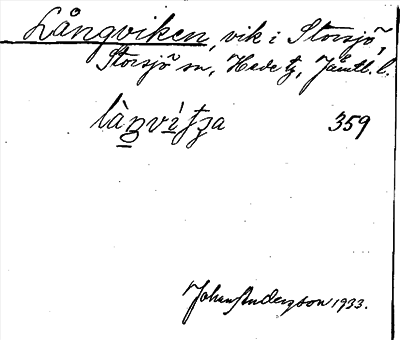 Långviken, vik i Storsjö,
Storsjö sn, Hede tg, Jämtl. l.
làŋví 359
Johan Anderzson 1933.